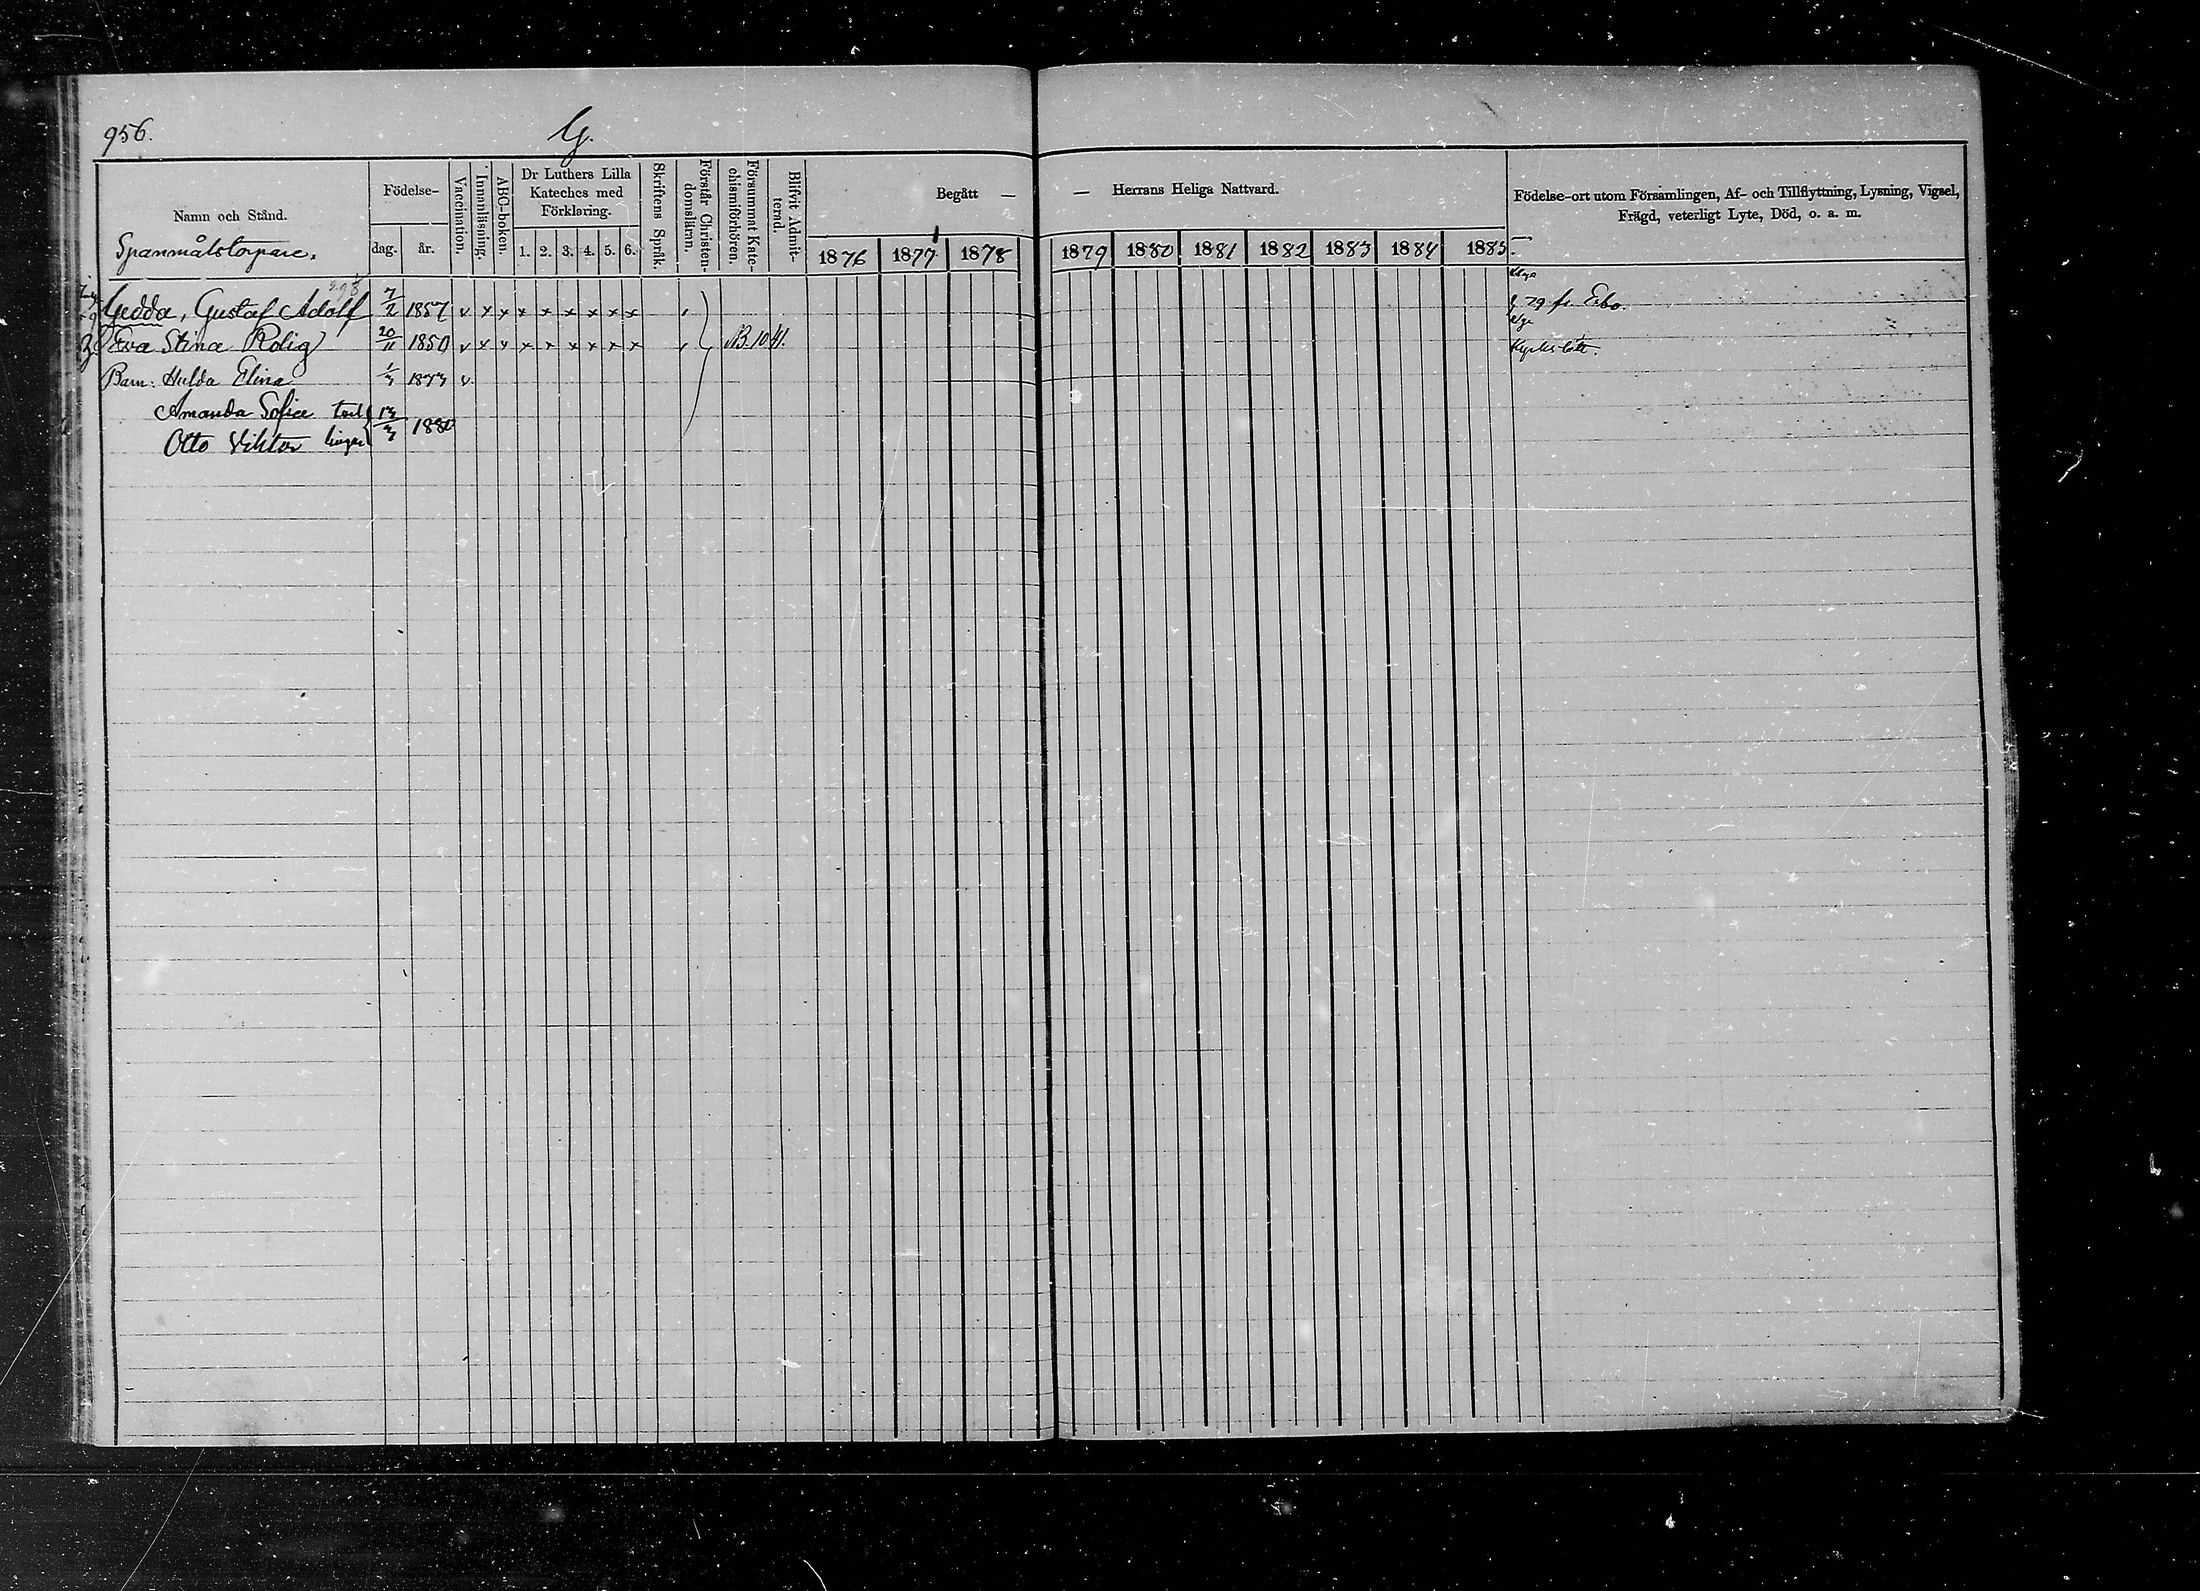 956.
G.
Namn och Stånd.
Spanmålstorpare.
Födelse-
dag.
år.
Vaccination.
Innanläsning.
ABC-boken.
Dr Luthers Lilla
Kateches med
Förklaring.
1. 2. 3. 4. 5. 6.
Skriftens Språk.
Förstår Christen-
domsläran.
Försummat Kate-
chismiförhören.
Blifvit Admit-
terad.
Begått —
— Herrans Heliga Nattvard.
1876 1877 1878 1879 1880 1881 1882 1883 1884 1885
Födelse-ort utom Församlingen, Af- och Tillflyttning, Lysning, Vigsel,
Frägd, veterligt Lyte, Död, o. a. m.
Gedda, Gustaf Adolf 7/2 1857 v x x x x x x x x 79 fr. Esbo.
Eva Stina Rolig 20/11 1850 v x x x x x x x x AB. 1041. Kyrkslätt.
Barn: Hulda Elina 1/3 1873 v
Amanda Sofia
Otto Viktor